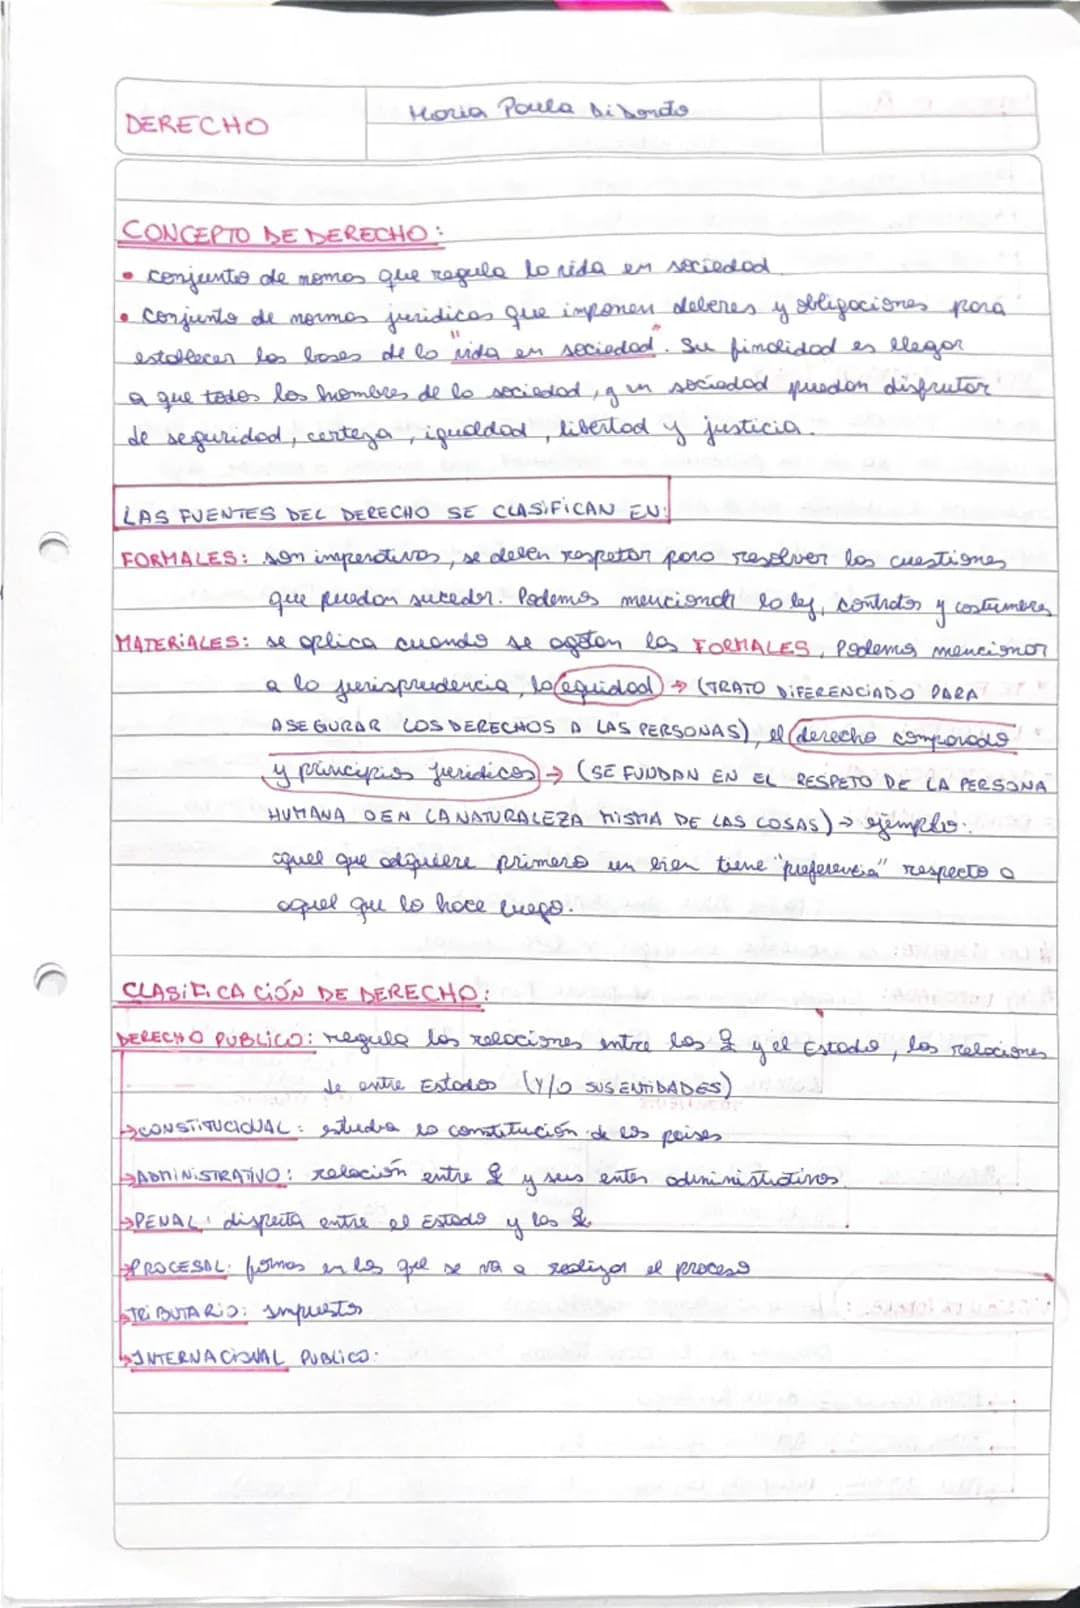 DERECHO
Maria Paula Di Bondo
CONCEPTO DE DERECHO:
• conjunto de normas que regula la vida en sociedad
• conjunto de normas juridicas que imponen deberes y obligaciones para
establecer las bases de la "vida en sociedad". Su finalidad es llegar
a que todos los hombres de la sociedad, y un sociedad puedan disfrutar
de seguridad, certeza, igualdad, libertad y justicia.
LAS FUENTES DEL DERECHO SE CLASIFICAN EN:
FORMALES: son imperativas, se deben respetar para resolver las cuestiones
que puedan suceder. Podemos mencionar la ley, contratos y costumbres
MATERIALES: se aplica cuando se agotan las FORMALES, Podemos mencionar
a la jurisprudencia, la equidad → (TRATO DIFERENCIADO PARA
ASEGURAR LOS DERECHOS A LAS PERSONAS), el derecho comparado
y principios juridicos → (SE FUNDAN EN EL RESPETO DE LA PERSONA
HUMANA O EN LA NATURALEZA MISMA DE LAS COSAS) → ejemplo:
aquel que adquiere primero un bien tiene "preferencia" respecto a
aquel que lo hace luego.
CLASIFICACIÓN DE DERECHO:
DERECHO PUBLICO: regula las relaciones entre las y el Estado, las relaciones
de entre Estados (Y/O SUS ENTIDADES)
→CONSTITUCIONAL: estudia la constitución de los paises
→ADMINISTRATIVO: relación entre y sus entes administrativos.
→PENAL: disputa entre el Estado y las
→PROCESAL: formas en las que se va a realizar el proceso
→TRIBUTARIO: Impuestos
→INTERNACIONAL PUBLICO: